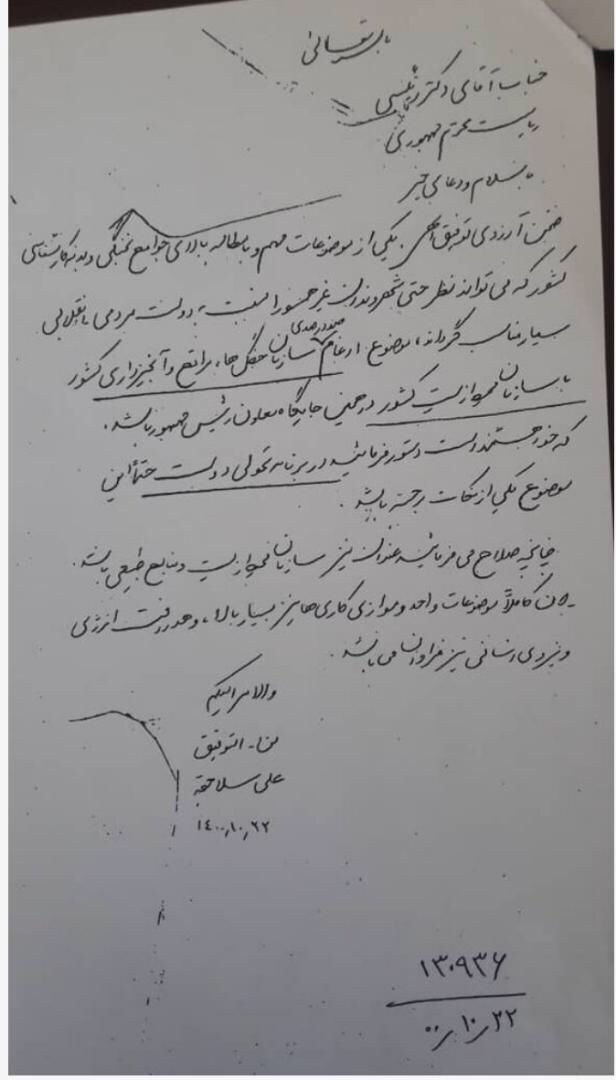 باسمه تعالی
جناب آقای دکتر رئیسی
ریاست محترم جمهوری
با سلام و دعای خیر
ضمن آرزوی توفیق الهی، یکی از موضوعات مهم و با مطالبه بالای جوامع نخبگی و بدنه کارشناسی
کشور که می تواند نظر حتی شهروندان غیر همسو را نسبت به دولت مردمی انقلابی
بسیار مناسب گرداند، موضوع ادغام صددرصدی سازمان جنگل ها، مراتع و آبخیزداری کشور
با سازمان محیط زیست کشور در همین جایگاه معاون رئیس جمهور باشد.
که خواهشمند است دستور فرمائید در برنامه تحولی دولت حتماً این
موضوع یکی از نکات برجسته باشد.
چنانچه صلاح می فرمائید عنوان نیز سازمان محیط زیست و منابع طبیعی باشد.
چون کاملاً موضوعات واحد و موازی کاری ها نیز بسیار بالا، و هدررفت انرژی
و نیروی انسانی نیز فراوان می باشد.
والامر الیکم
و من ا... التوفیق
علی سلاجقه
۱۴۰۰,۱۰,۲۲
۱۳۰۹۳۶
۰۰ر۱۰ر۲۲